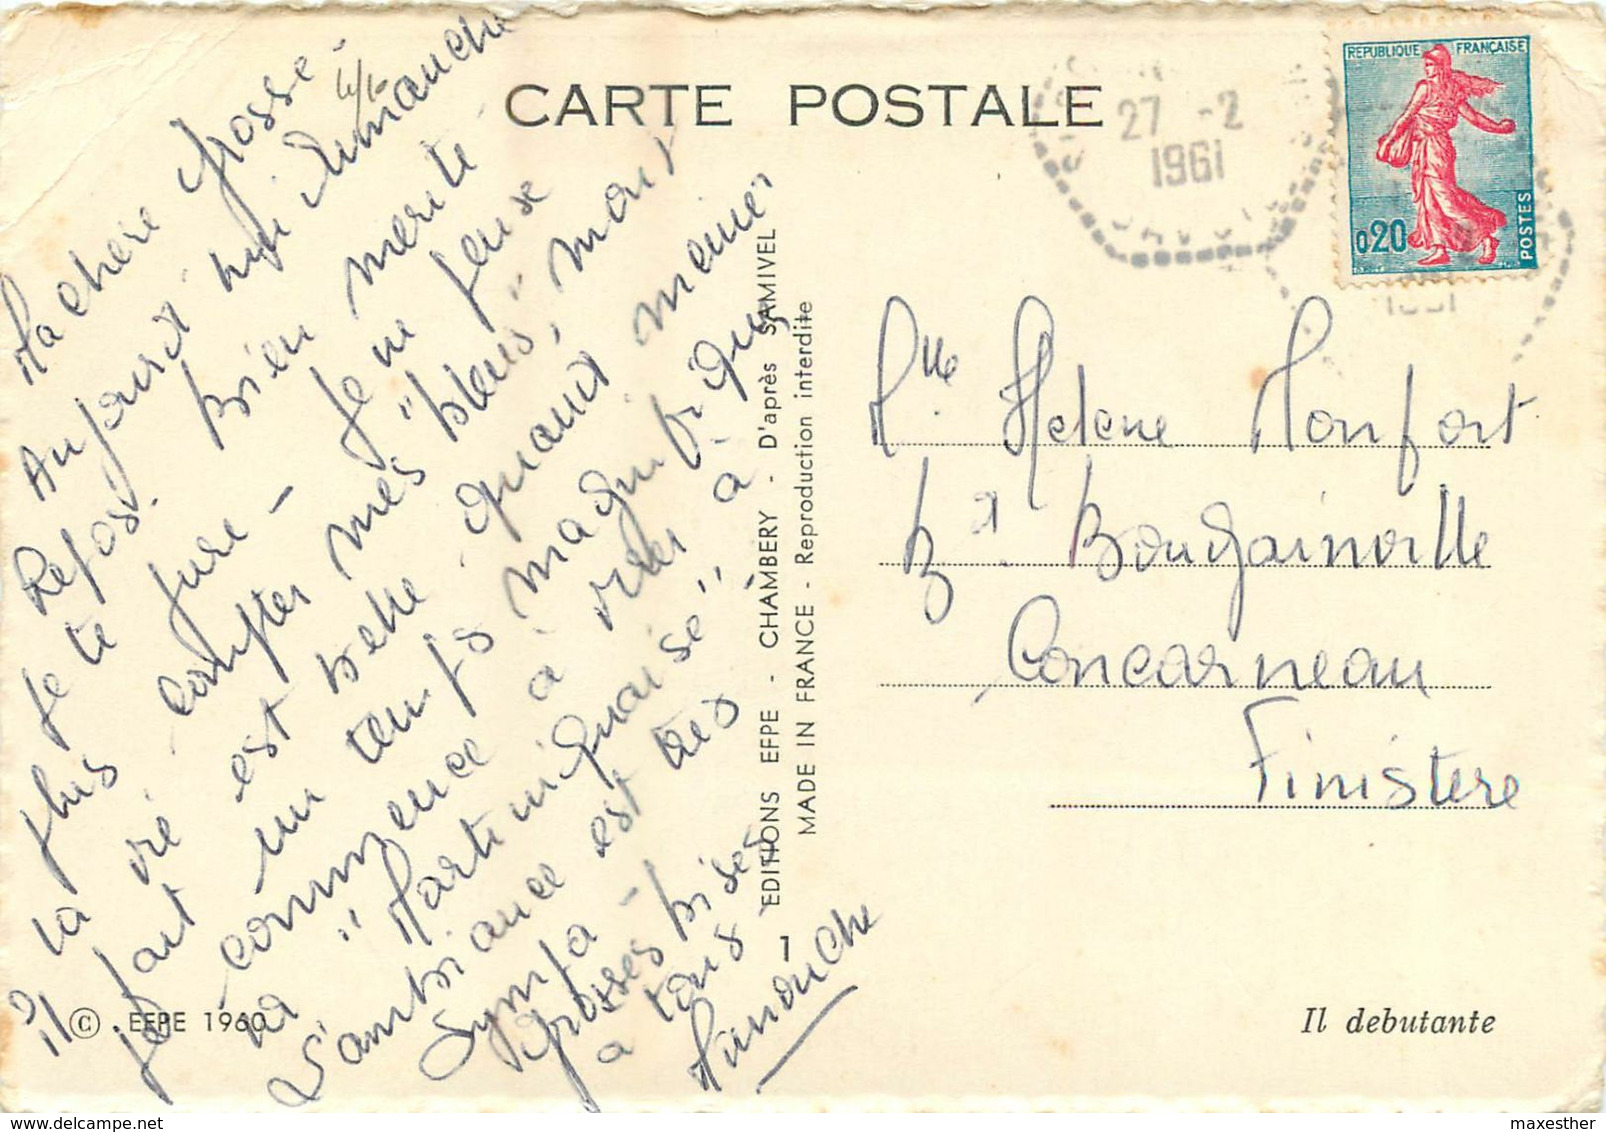 CARTE POSTALE
REPUBLIQUE FRANÇAISE
0,20
POSTES
27 -2
1961
SAVOIE
Ma chère Grosse -
Aujourd'hui Dimanche
Repos. Bien mérité
Je te jure - Je ne peux
plus compter mes "bleus", mais
la vie est belle quand même,
il fait un temps magnifique
je commence à virer à
la "Martiniquaise".
L'ambiance est très
sympa -
Grosses bises
à tous -
Manouche
Mlle Helene Monfort
Bd Bougainville
Concarneau
Finistere
EDITIONS EFPE - CHAMBERY - D'après SAMIVEL
MADE IN FRANCE - Reproduction interdite
1
© EFPE 1960
Il debutante
maxesther